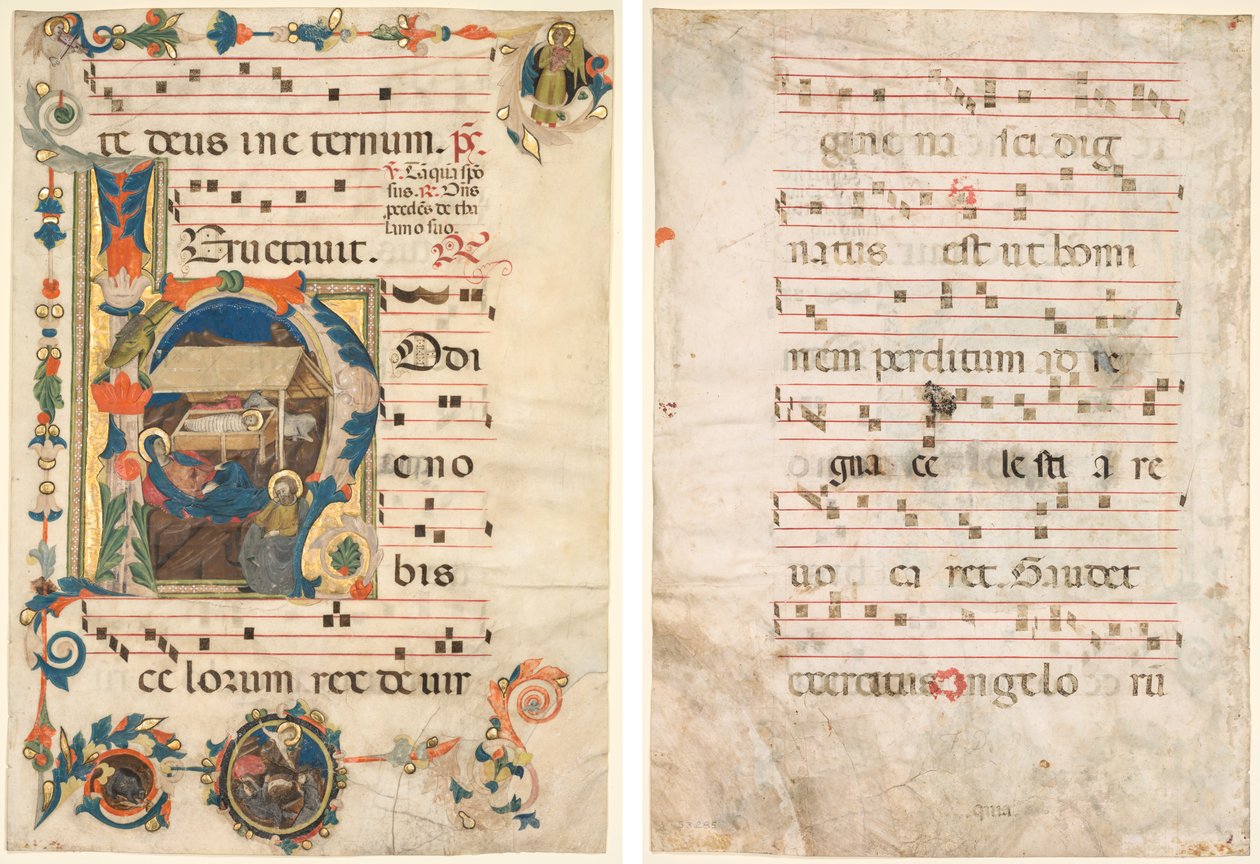 te deus in e ternum. ps̄.
v̄. Tā quā spō
sus. R̄. Dn̄s
p̄cedēs de tha
lamo suo.
Eructavit. R̄
Hodi
e no
bis
ce lorum rex de uir
gine na sci dig
natus est ut homi
nem perditum ad re
gna ce le sti a re
uo ca ret. Gaudet
exercitus angelo rū
qma